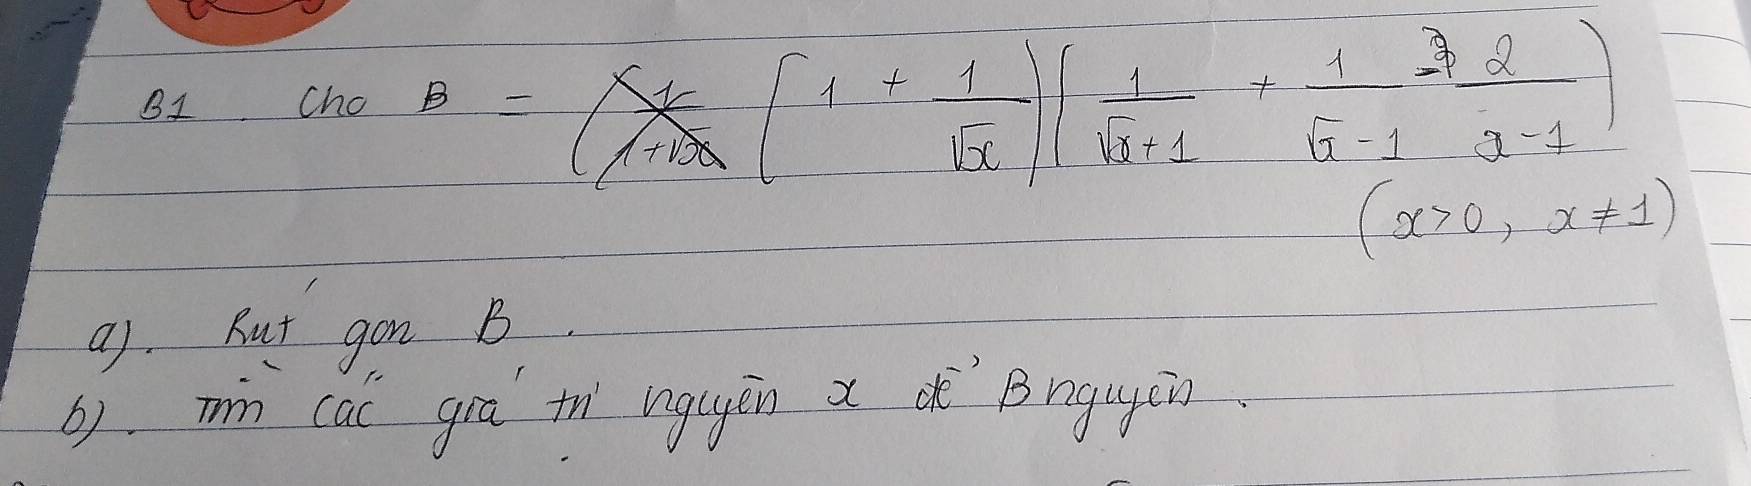 B1. Cho B = (1 + 1/√x)(1/(√x+1) + 1/(√x-1) - 2/(x-1))
(x>0, x≠1)
a). Rút gọn B.
b). Tìm các giá trị nguyên x để B nguyên.